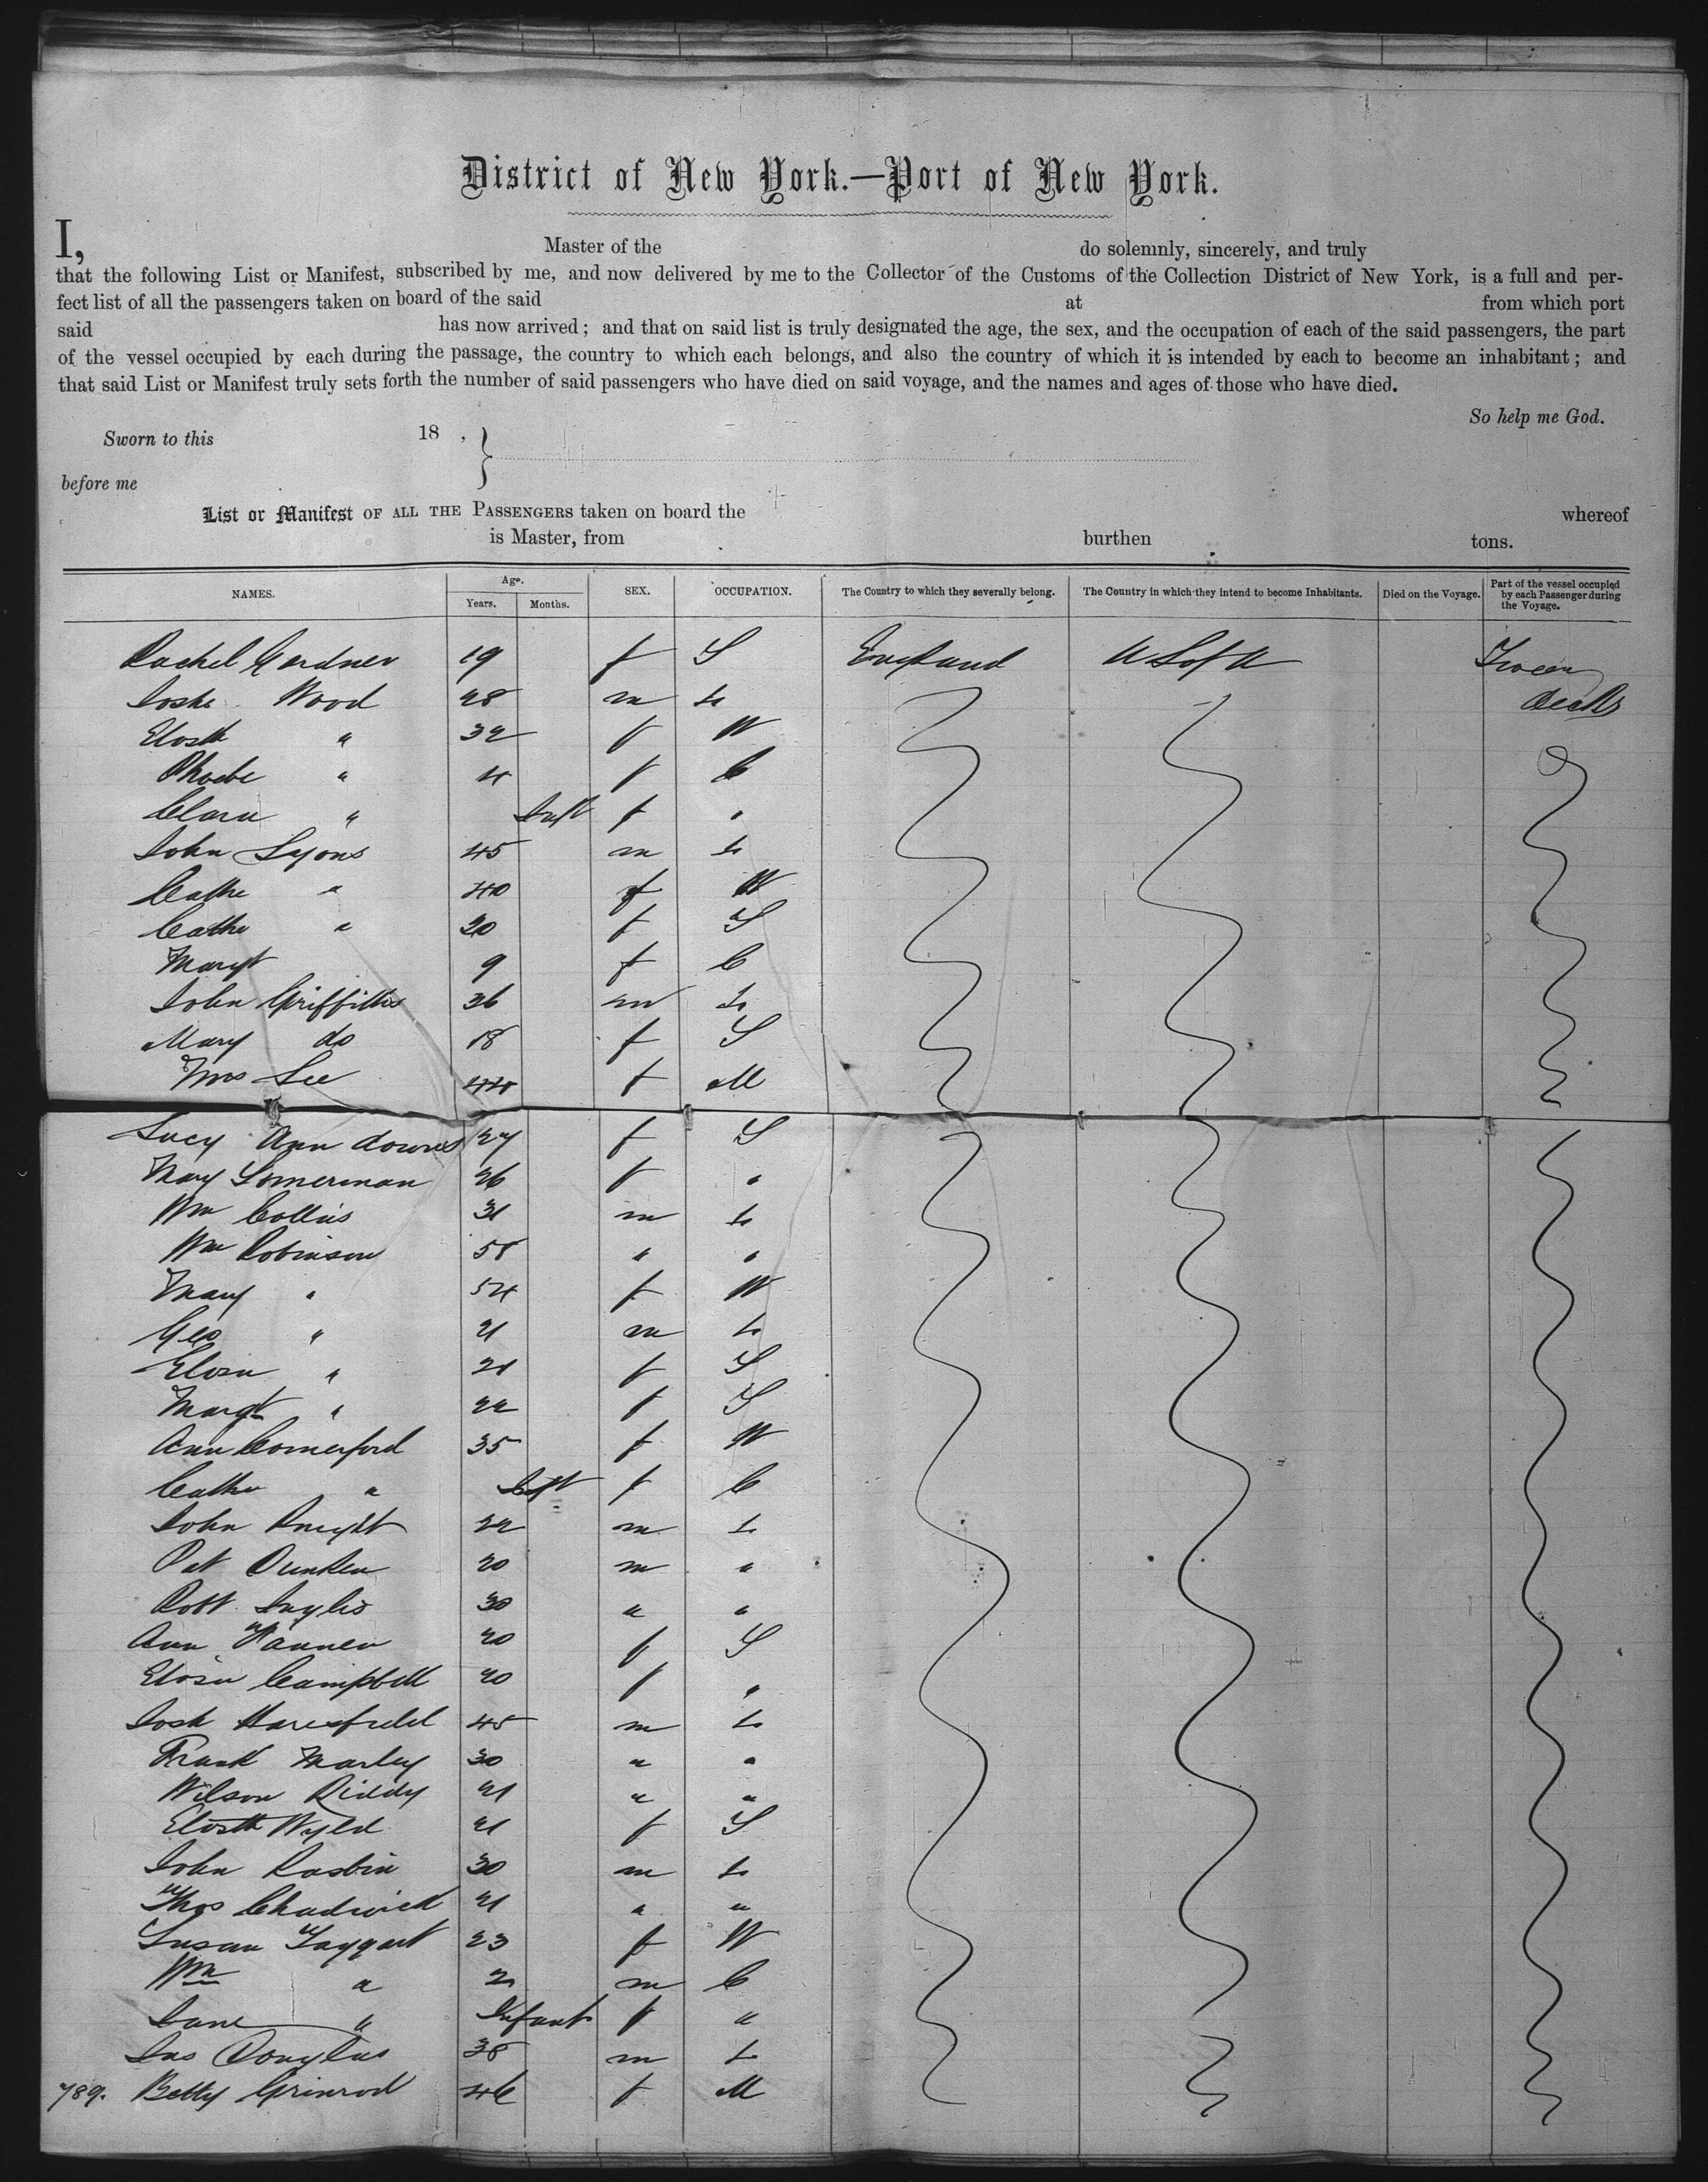 District of New York.—Port of New York.
I, Master of the do solemnly, sincerely, and truly
that the following List or Manifest, subscribed by me, and now delivered by me to the Collector of the Customs of the Collection District of New York, is a full and per-
fect list of all the passengers taken on board of the said at from which port
said has now arrived; and that on said list is truly designated the age, the sex, and the occupation of each of the said passengers, the part
of the vessel occupied by each during the passage, the country to which each belongs, and also the country of which it is intended by each to become an inhabitant; and
that said List or Manifest truly sets forth the number of said passengers who have died on said voyage, and the names and ages of those who have died.
So help me God.
Sworn to this 18 ,
before me
List or Manifest OF ALL THE PASSENGERS taken on board the whereof
is Master, from burthen tons.
NAMES. Age. Years. Months. SEX. OCCUPATION. The Country to which they severally belong. The Country in which they intend to become Inhabitants. Died on the Voyage. Part of the vessel occupied by each Passenger during the Voyage.
Rachel Gardner 19 f S England U S of A
Wood 28 m L
Elizth " 32 f W
Phoebe " 4 f C
Clara " Inft f "
John Lyons 45 m L
Cathe " 40 f W
Cathe " 20 f S
Margt 9 f C
John Griffiths 36 m L
Mary do 18 f S
Mrs Lee 44 f M
Lucy Ann downes 27 f S
Mary Somerman 26 f "
Wm Collins 31 m L
Wm Robinson 58 " "
Mary " 54 f W
Geo " 21 m L
Eliza " 21 f S
Margt " 22 f S
Ann Comerford 35 f W
Cathe " Inft f C
John Knight 22 m L
Pat 20 m "
Robt Inglis 30 " "
Ann 20 f S
Eliza Campbell 20 f "
Josh Haresfield 45 m L
Frank Marley 30 " "
Wilson Riddy 21 " "
Elizth Wyld 21 f S
John 30 m L
Thos Chadwick 21 " "
Susan Taggart 23 f W
Wm " 2 m C
Jane " Infant f "
Jas Douglas 38 m L
789. Betty Grinrod 46 f M